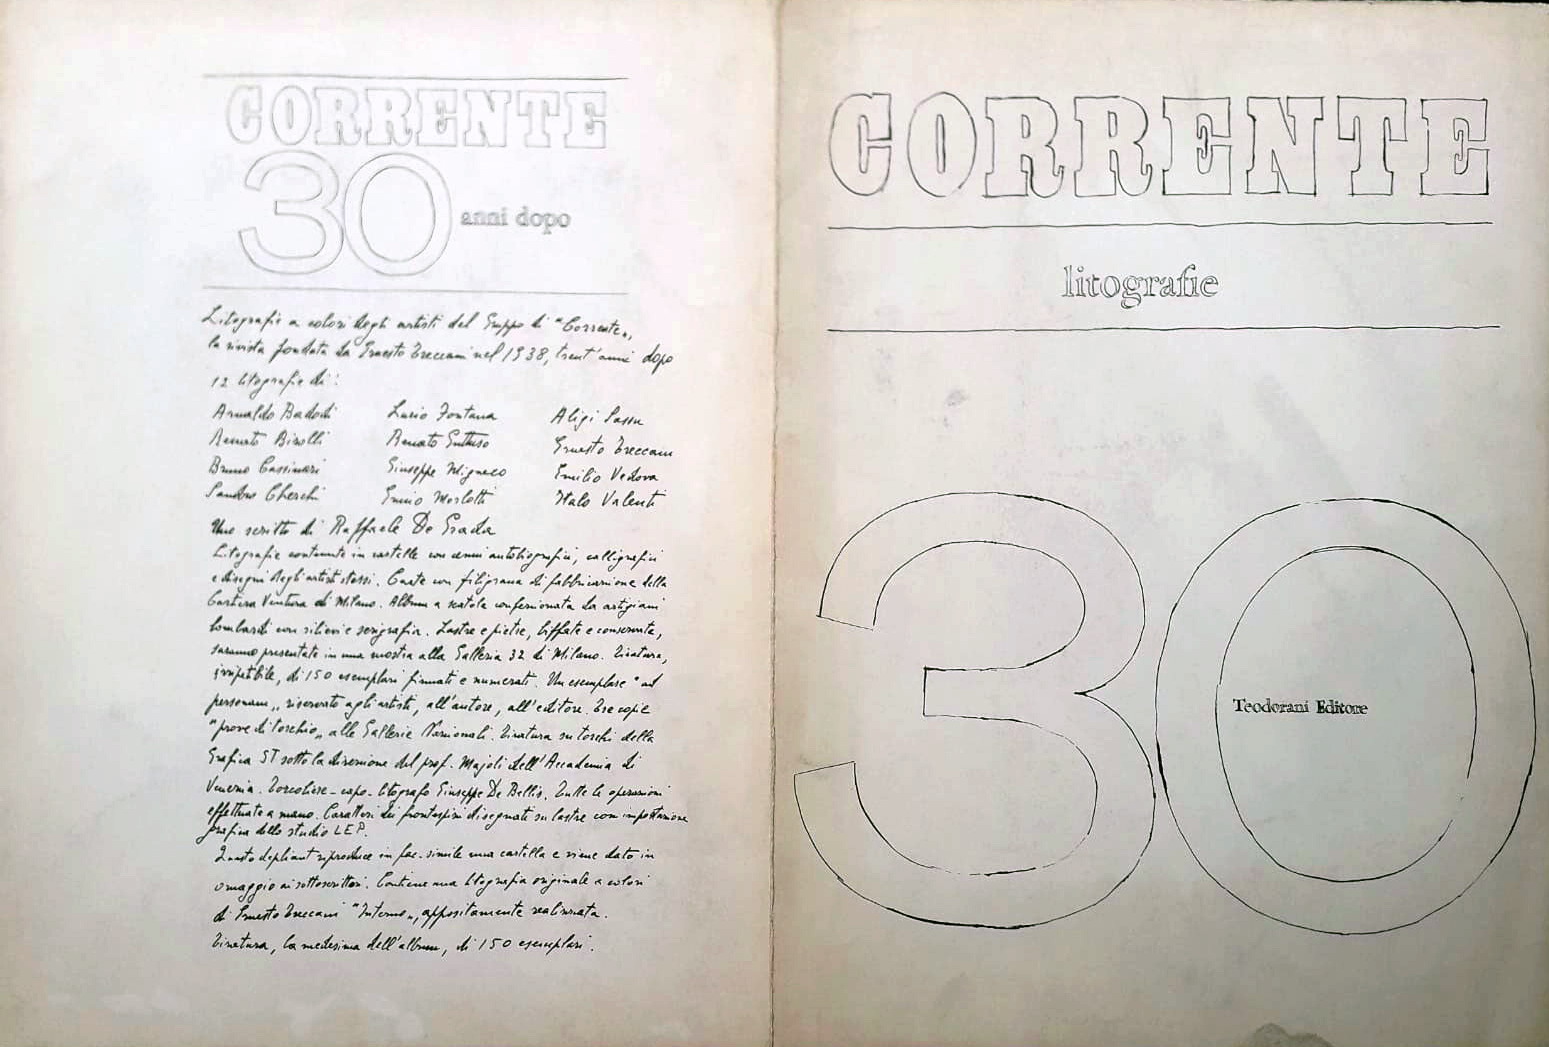 CORRENTE
30 anni dopo
Litografie a colori degli artisti del Gruppo di "Corrente„,
la rivista fondata da Ernesto Treccani nel 1938, trent'anni dopo
12 litografie di:
Arnaldo Badodi Lucio Fontana Aligi Sassu
Renato Birolli Renato Guttuso Ernesto Treccani
Bruno Cassinari Giuseppe Migneco Emilio Vedova
Sandro Cherchi Ennio Morlotti Italo Valenti
Uno scritto di Raffaele De Grada
Litografie contenute in cartelle con cenni autobiografici, calligrafici
e disegni degli artisti stessi. Carte con filigrana di fabbricazione della
Cartiera Ventura di Milano. Album a scatola confezionata da artigiani
lombardi con rilievi e serigrafia. Lastre e pietre, biffate e conservate,
saranno presentate in una mostra alla Galleria 32 di Milano. Tiratura,
irripetibile, di 150 esemplari firmati e numerati. Un esemplare "ad
personam„, riservato agli artisti, all'autore, all'editore. Tre copie
"prove di torchio„ alle Gallerie Nazionali. Tiratura su torchi della
Grafica ST sotto la direzione del prof. Majoli dell'Accademia di
Venezia. Torcoliere-capo-litografo Giuseppe De Bellis. Tutte le operazioni
effettuate a mano. Caratteri dei frontespizi disegnati su lastre con impostazione
grafica dello studio LEP.
Questo depliant riproduce in fac-simile una cartella e viene dato in
omaggio ai sottoscrittori. Contiene una litografia originale a colori
di Ernesto Treccani "Interno„, appositamente realizzata.
Tiratura, la medesima dell'album, di 150 esemplari.
CORRENTE
litografie
30
Teodorani Editore